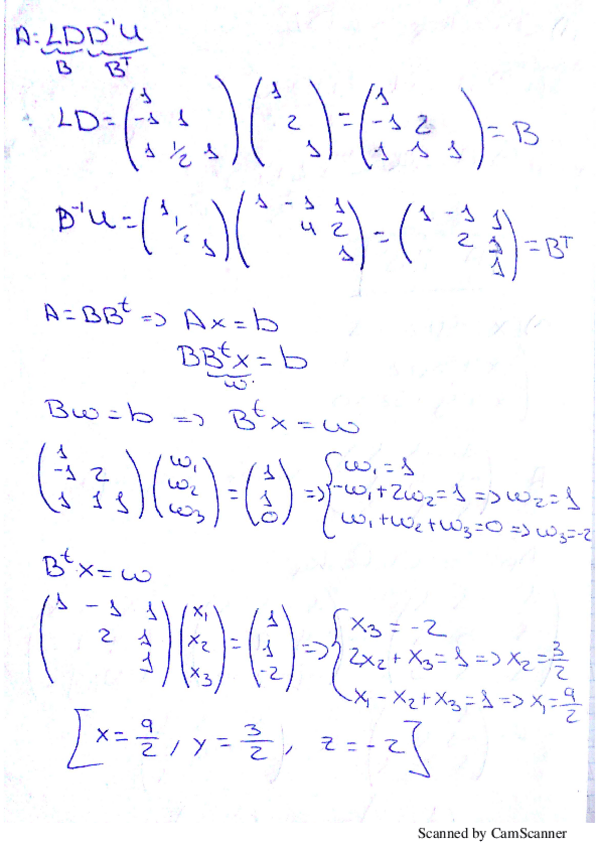 A = LDD⁻¹U
B Bᵀ
LD = (1 / -1 1 / 1 1/2 1) (1 / 2 / 1) = (1 / -1 2 / 1 1 1) = B
D⁻¹U = (1 / 1/2 / 1) (1 -1 1 / 4 2 / 1) = (1 -1 1 / 2 1 / 1) = Bᵀ
A = BBᵗ => Ax = b
BBᵗx = b
w
Bw = b => Bᵗx = w
(1 / -1 2 / 1 1 1) (w₁ / w₂ / w₃) = (1 / 1 / 0) => { w₁ = 1
-w₁ + 2w₂ = 1 => w₂ = 1
w₁ + w₂ + w₃ = 0 => w₃ = -2
Bᵗx = w
(1 -1 1 / 2 1 / 1) (x₁ / x₂ / x₃) = (1 / 1 / -2) => { x₃ = -2
2x₂ + x₃ = 1 => x₂ = 3/2
x₁ - x₂ + x₃ = 1 => x₁ = 9/2
[x = 9/2, y = 3/2, z = -2]
Scanned by CamScanner